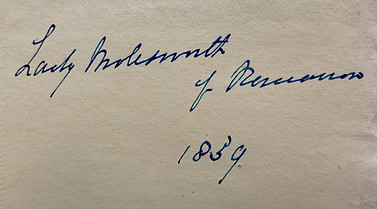 Lady Molesworth
of Pencarrow
1859